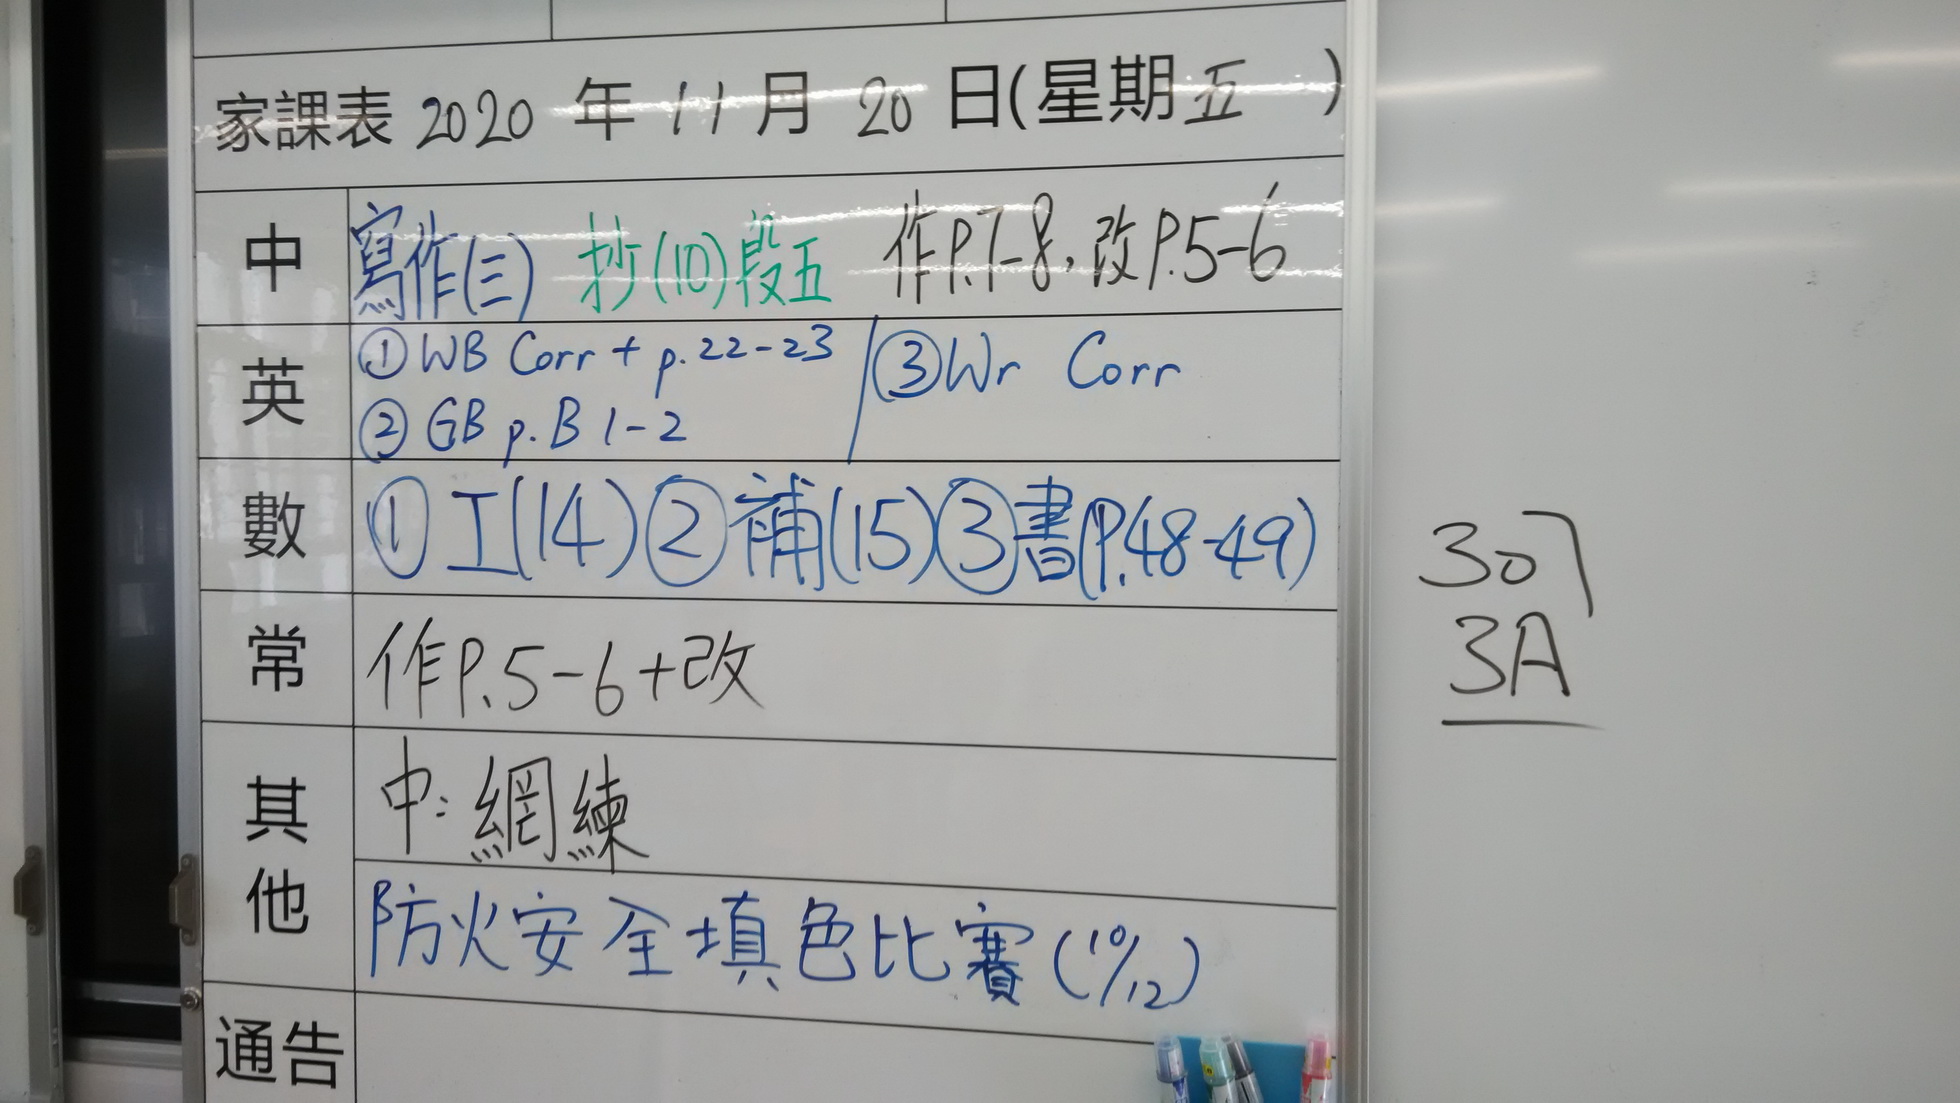 家課表 2020 年 11 月 20 日(星期五 )
中 寫作(三) 抄(10)段五 作P.7-8,改P.5-6
英 ① WB Corr + p.22-23 / ③ Wr Corr
② GB p.B 1-2
數 ① 工(14) ② 補(15) ③ 書(P.48-49)
常 作P.5-6+改
其他 中:網練
防火安全填色比賽(10/12)
通告
307
3A